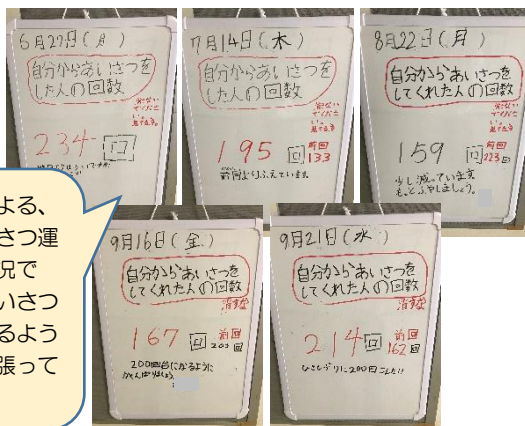 6月27日(月)
自分からあいさつを
した人の回数
234 回
7月14日(木)
自分からあいさつを
した人の回数
195 回 前回
133
前回よりふえています。
8月22日(月)
自分からあいさつを
してくれた人の回数
159 回 前回
223回
少し減っています
もっとふやしましょう。
による、
さつ運
況で
いさつ
るよう
張って
9月16日(金)
自分からあいさつを
してくれた人の回数
167 回 前回
203回
200回台になるように
がんばりましょう
9月21日(水)
自分からあいさつを
してくれた人の回数
214回 前回
162回
ひさしぶりに200回こした!!